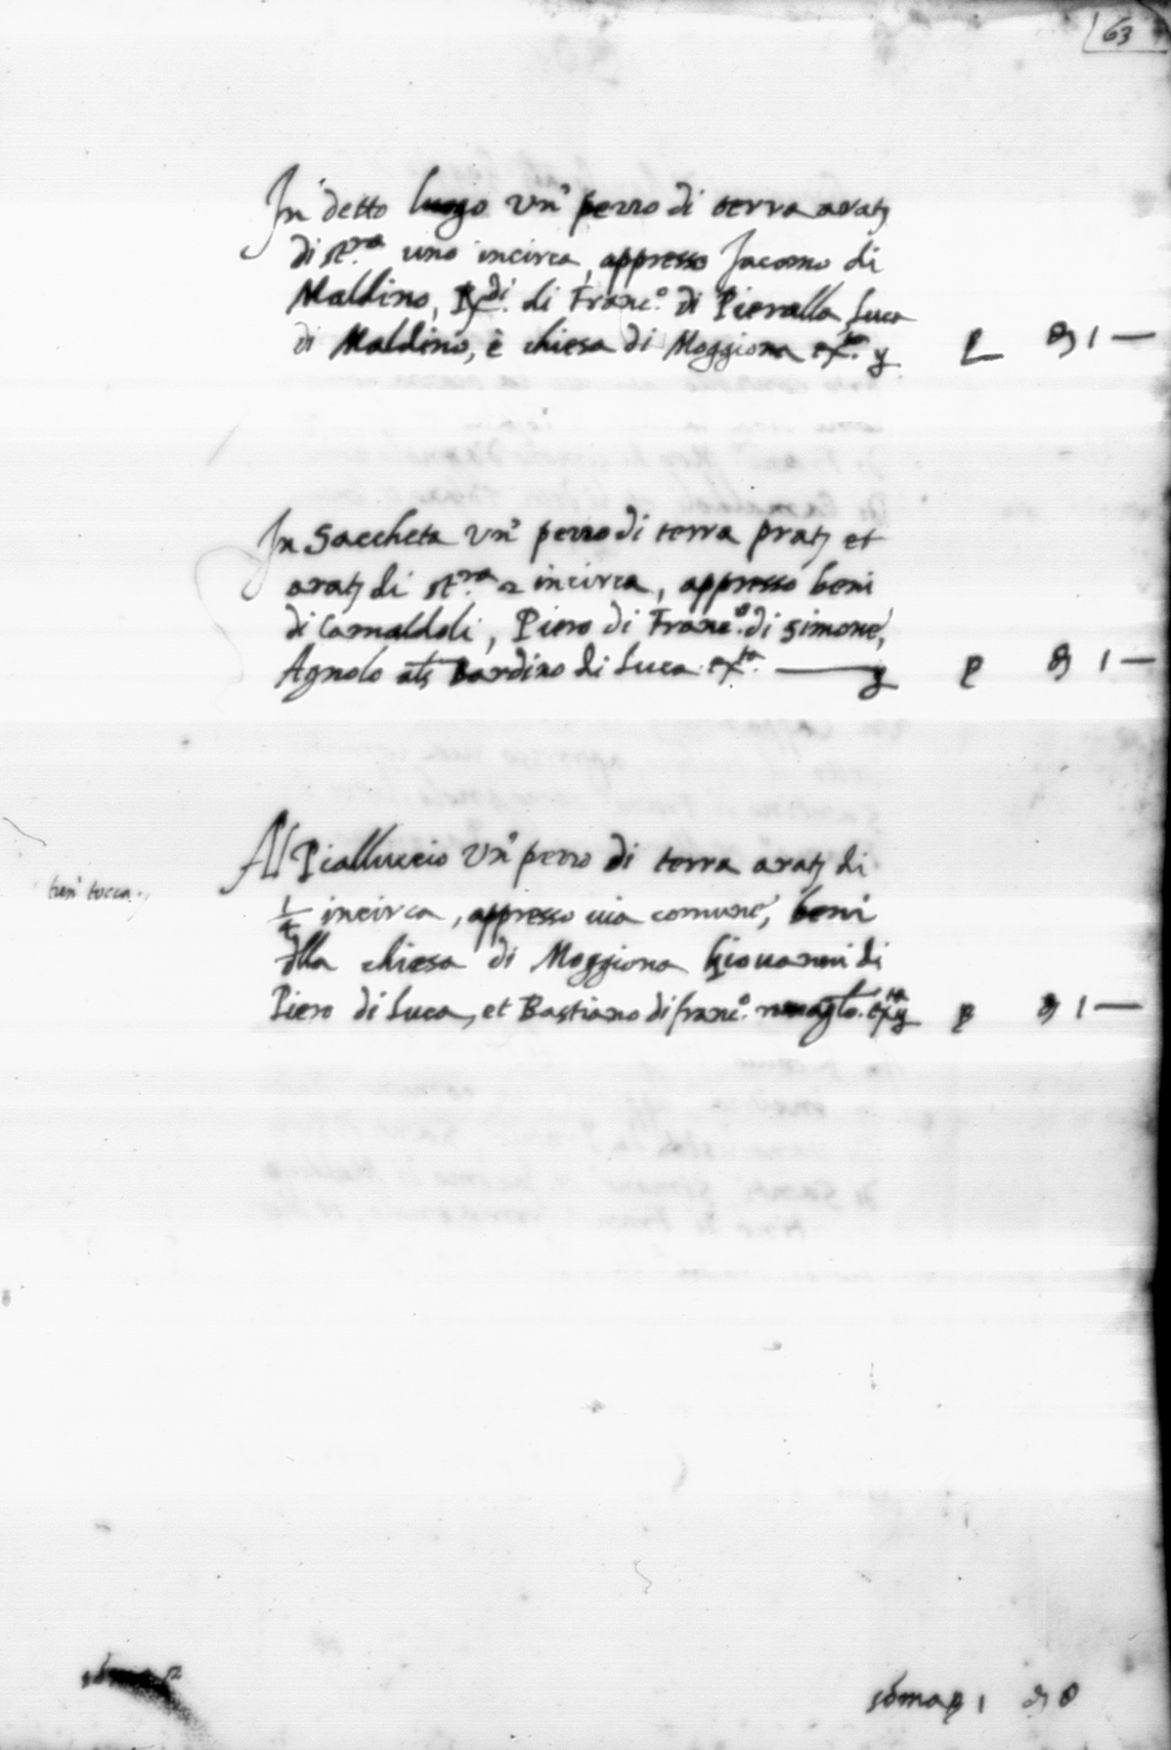 63
In detto luogo un° pezzo di terra arat
di st.ra uno incirca, appresso Jacomo di
Maldino, di Franc.° di Pieralla Luca
di Maldino, è chiesa di Moggiona
1 —
In Saccheta un° pezzo di terra prat et
arat di st.ra 2 incirca, appresso beni
di Camaldoli, Piero di Franc.° di simone,
Agnolo als Bardino di Luca
1 —
Al Pialluccio un° pezzo di terra arat di
incirca, appresso uia comune, beni
dlla chiesa di Moggiona Giouanni di
tocca
Piero di Luca, et Bastiano di franc.°
1 —
soma 1 8